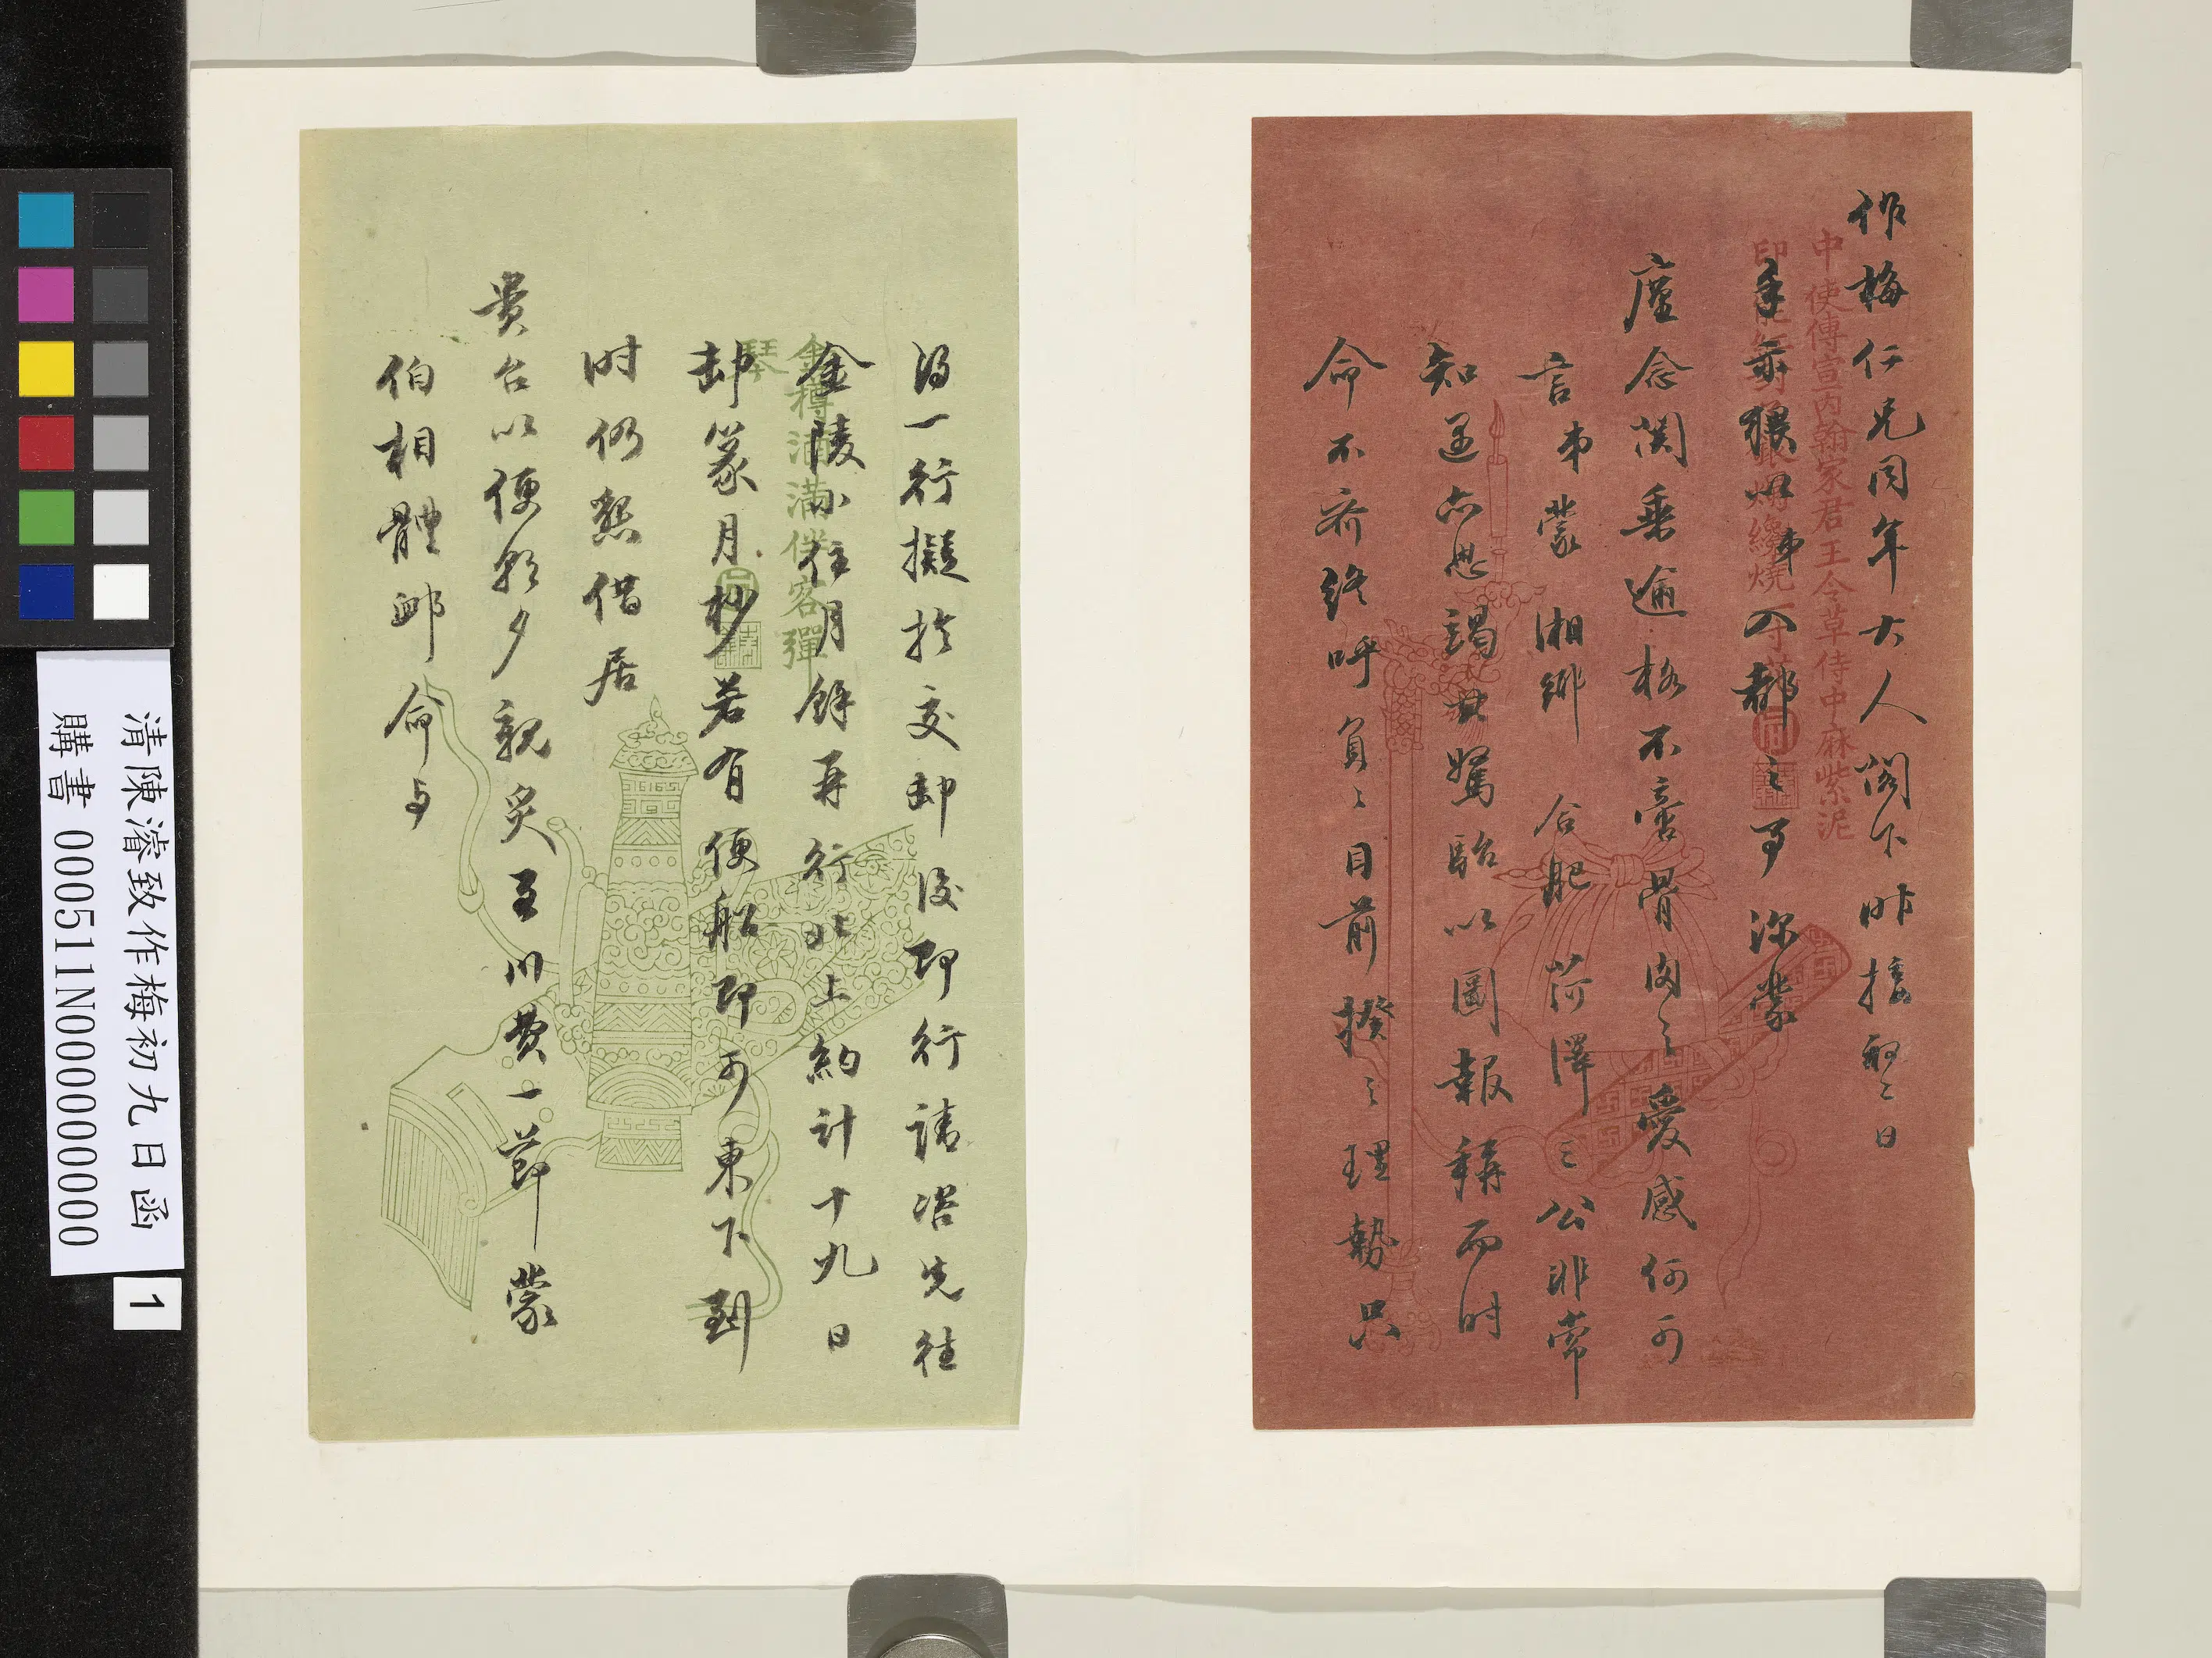 作梅仁兄同年大人閣下昨接初二日
手示猥以弟入都之事深蒙
廑念関垂逾格不啻骨肉之愛感何可
言弟蒙 湘鄉 合肥 菏澤三公非常
知遇亦思竭其駑駘以圖報稱而時
命不齊終呼負負目前揆之理勢只
得一行擬於交卸後即行請咨先往
金陵小住月餘再行北上約計十九日
卸篆月杪若有便船即可東下到
时仍懇借居
貴台以便朝夕親炙至川費一節蒙
伯相體卹命与
中使傳宣內翰家君王令草侍中麻紫泥
金樽滿滿伴客彈
琴
清陳濬致作梅初九日函
購書 000511N000000000
1